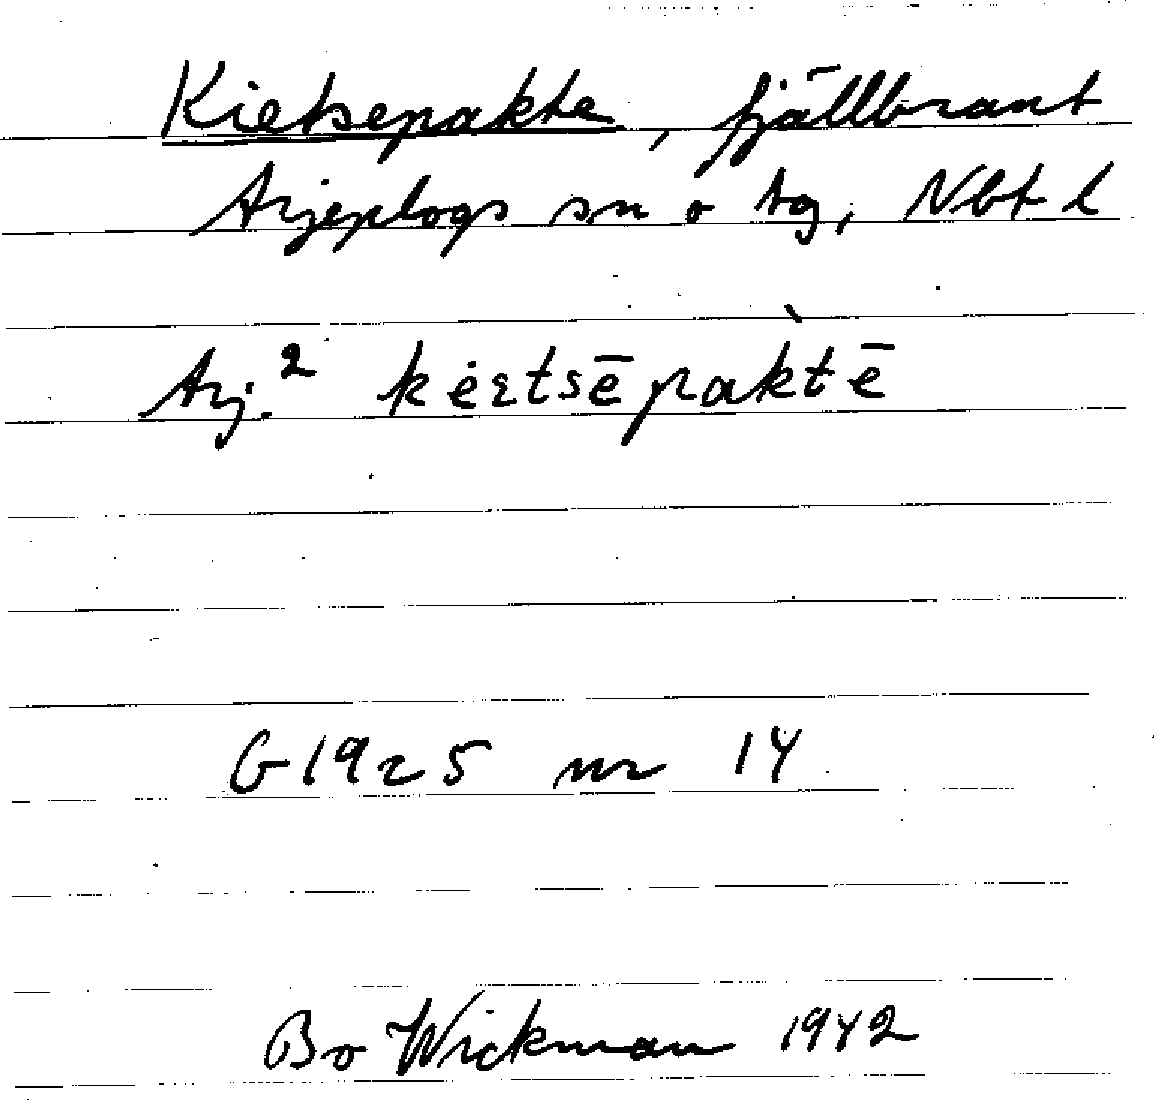 Kietsepakte, fjällbrant
Arjeplogs sn o tg, Nbt l
Arj.² kėrtsēpàktē
G 1925 nr 14
Bo Wickman 1942